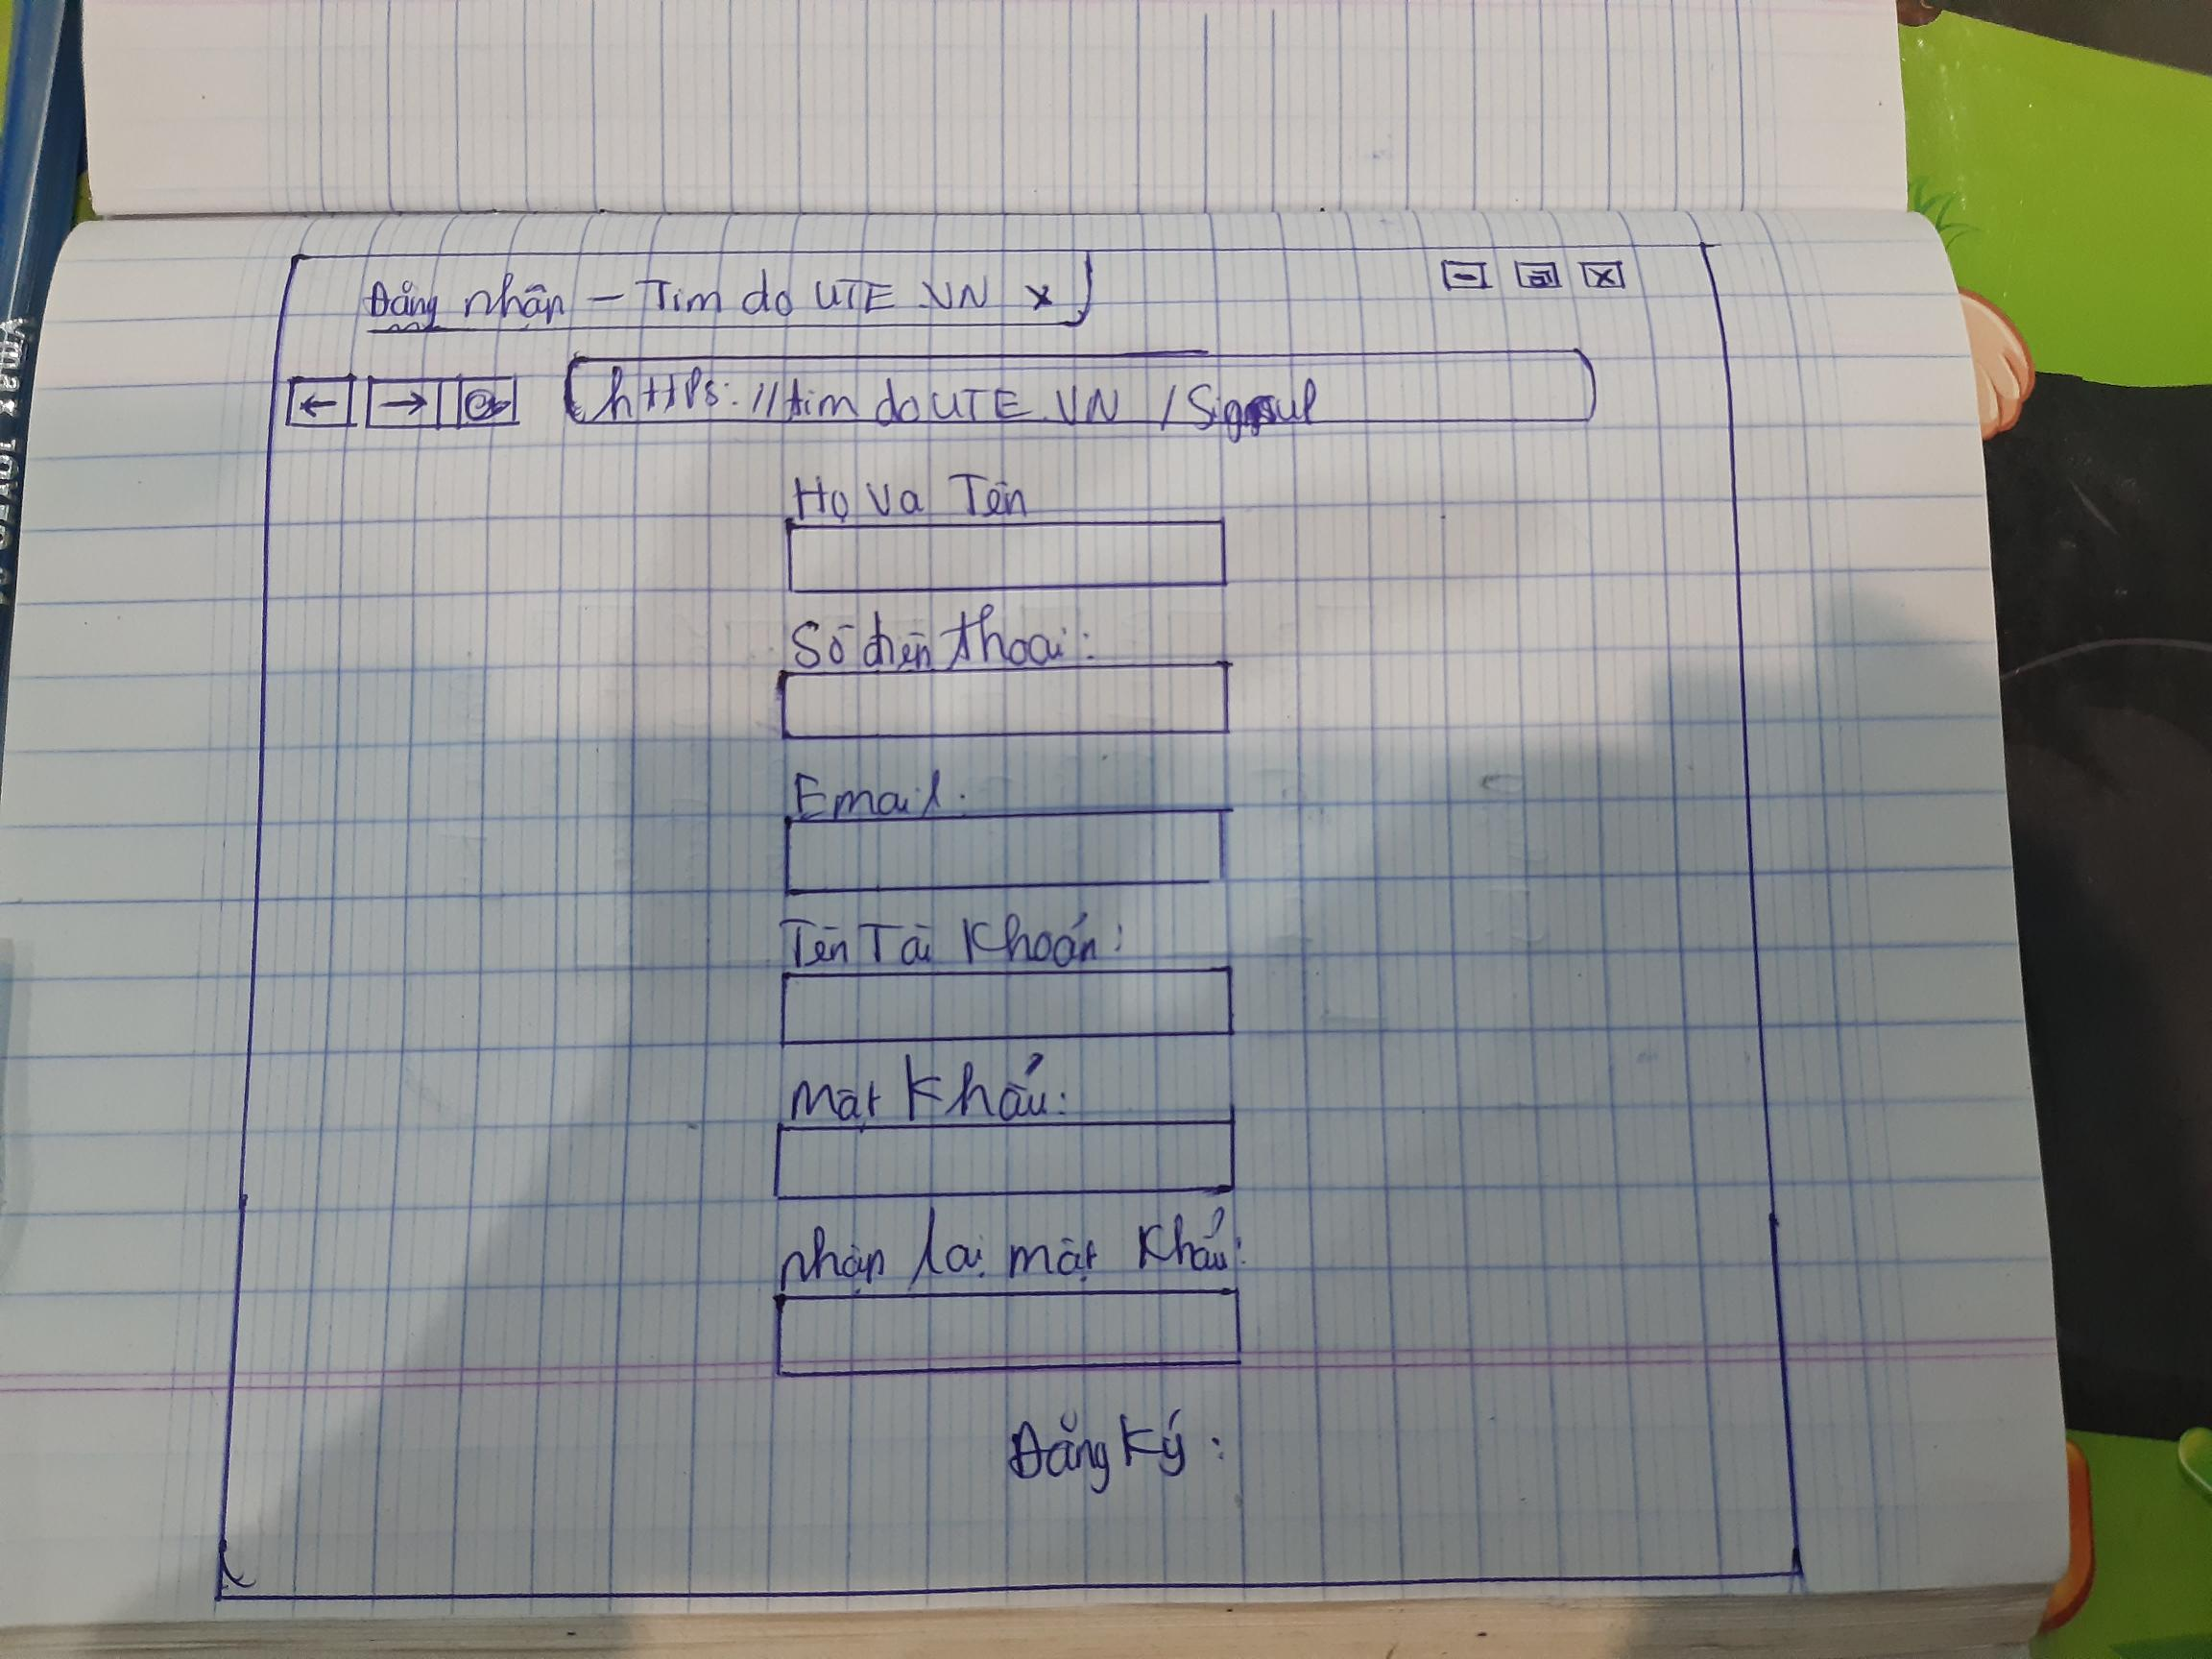 Đăng nhận - Tìm do UTE.VN x
https://timdoUTE.VN/Signup
Họ Va Tên
Số điện thoại:
Email:
Tên Tài Khoản:
Mật Khẩu:
nhập lại mật khẩu:
Đăng Ký: